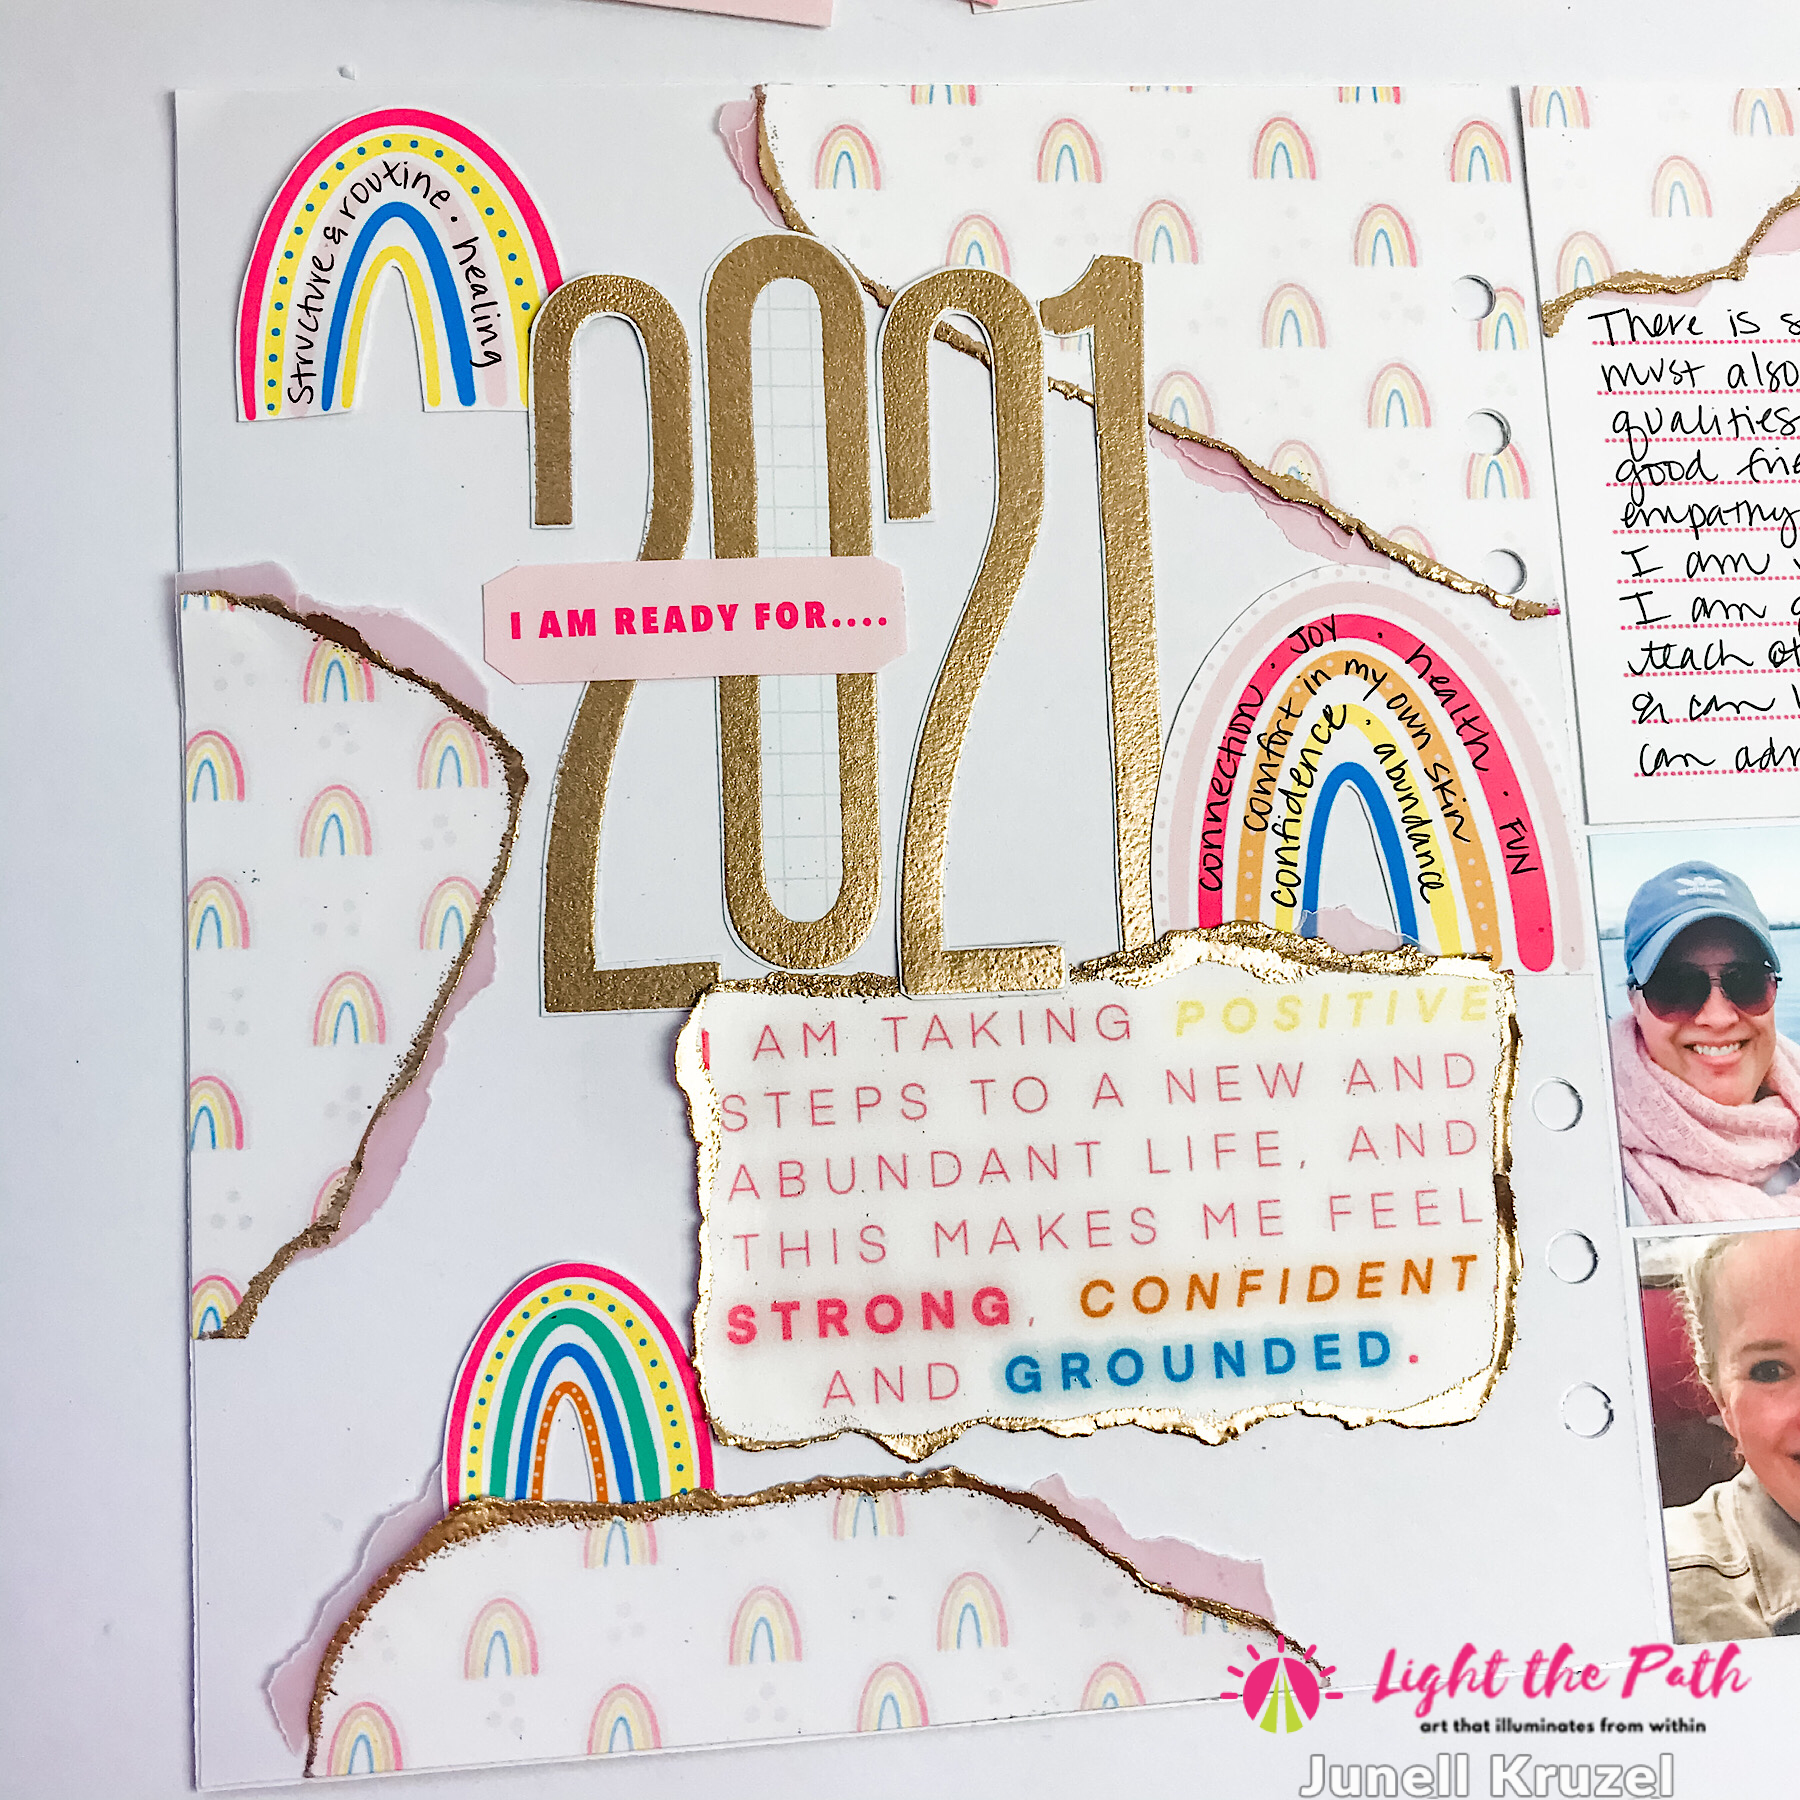 structure & routine . healing
2021
I AM READY FOR....
connection . Joy . health . FUN
comfort in my own skin
confidence . abundance
I AM TAKING POSITIVE
STEPS TO A NEW AND
ABUNDANT LIFE, AND
THIS MAKES ME FEEL
STRONG, CONFIDENT
AND GROUNDED.
There is
must also
qualities
good
empathy
I am
I am
teach
& can
can
adidas
Light the Path
art that illuminates from within
Junell Kruzel